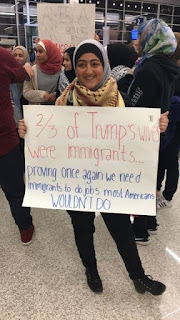 2/3 of Trump's wives
were immigrants...
proving once again we need
immigrants to do jobs most Americans
WOULDN'T DO